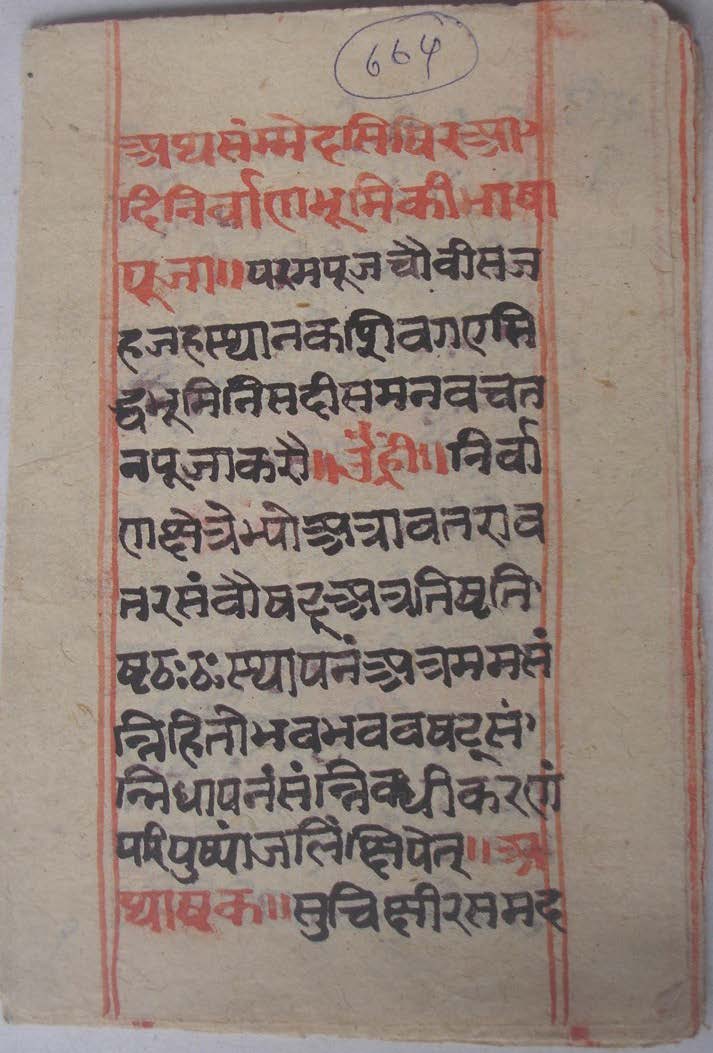 ६६५
अथसंम्मेदसिषिरआ
दिनिर्वाणभूमिकीभाषा
पूजा॥परमपूजचौवीसज
हजहस्थानकशिवगएसि
द्धभूमिनिसदीसमनवचत
नपूजाकरौ॥उँह्रीं॥निर्वा
णक्षेत्रेभ्योअत्रावतराव
तरसंवौषट्अत्रतिष्टति
ष्टठःठःस्थापनंअत्रममसं
न्निहितोभवभववषट्सं
न्निधापनंसंन्निक्धीकरणं
परिपुष्पांजलिंक्षिपेत्॥अ
थाष्टक॥सुचिक्षीरसमद